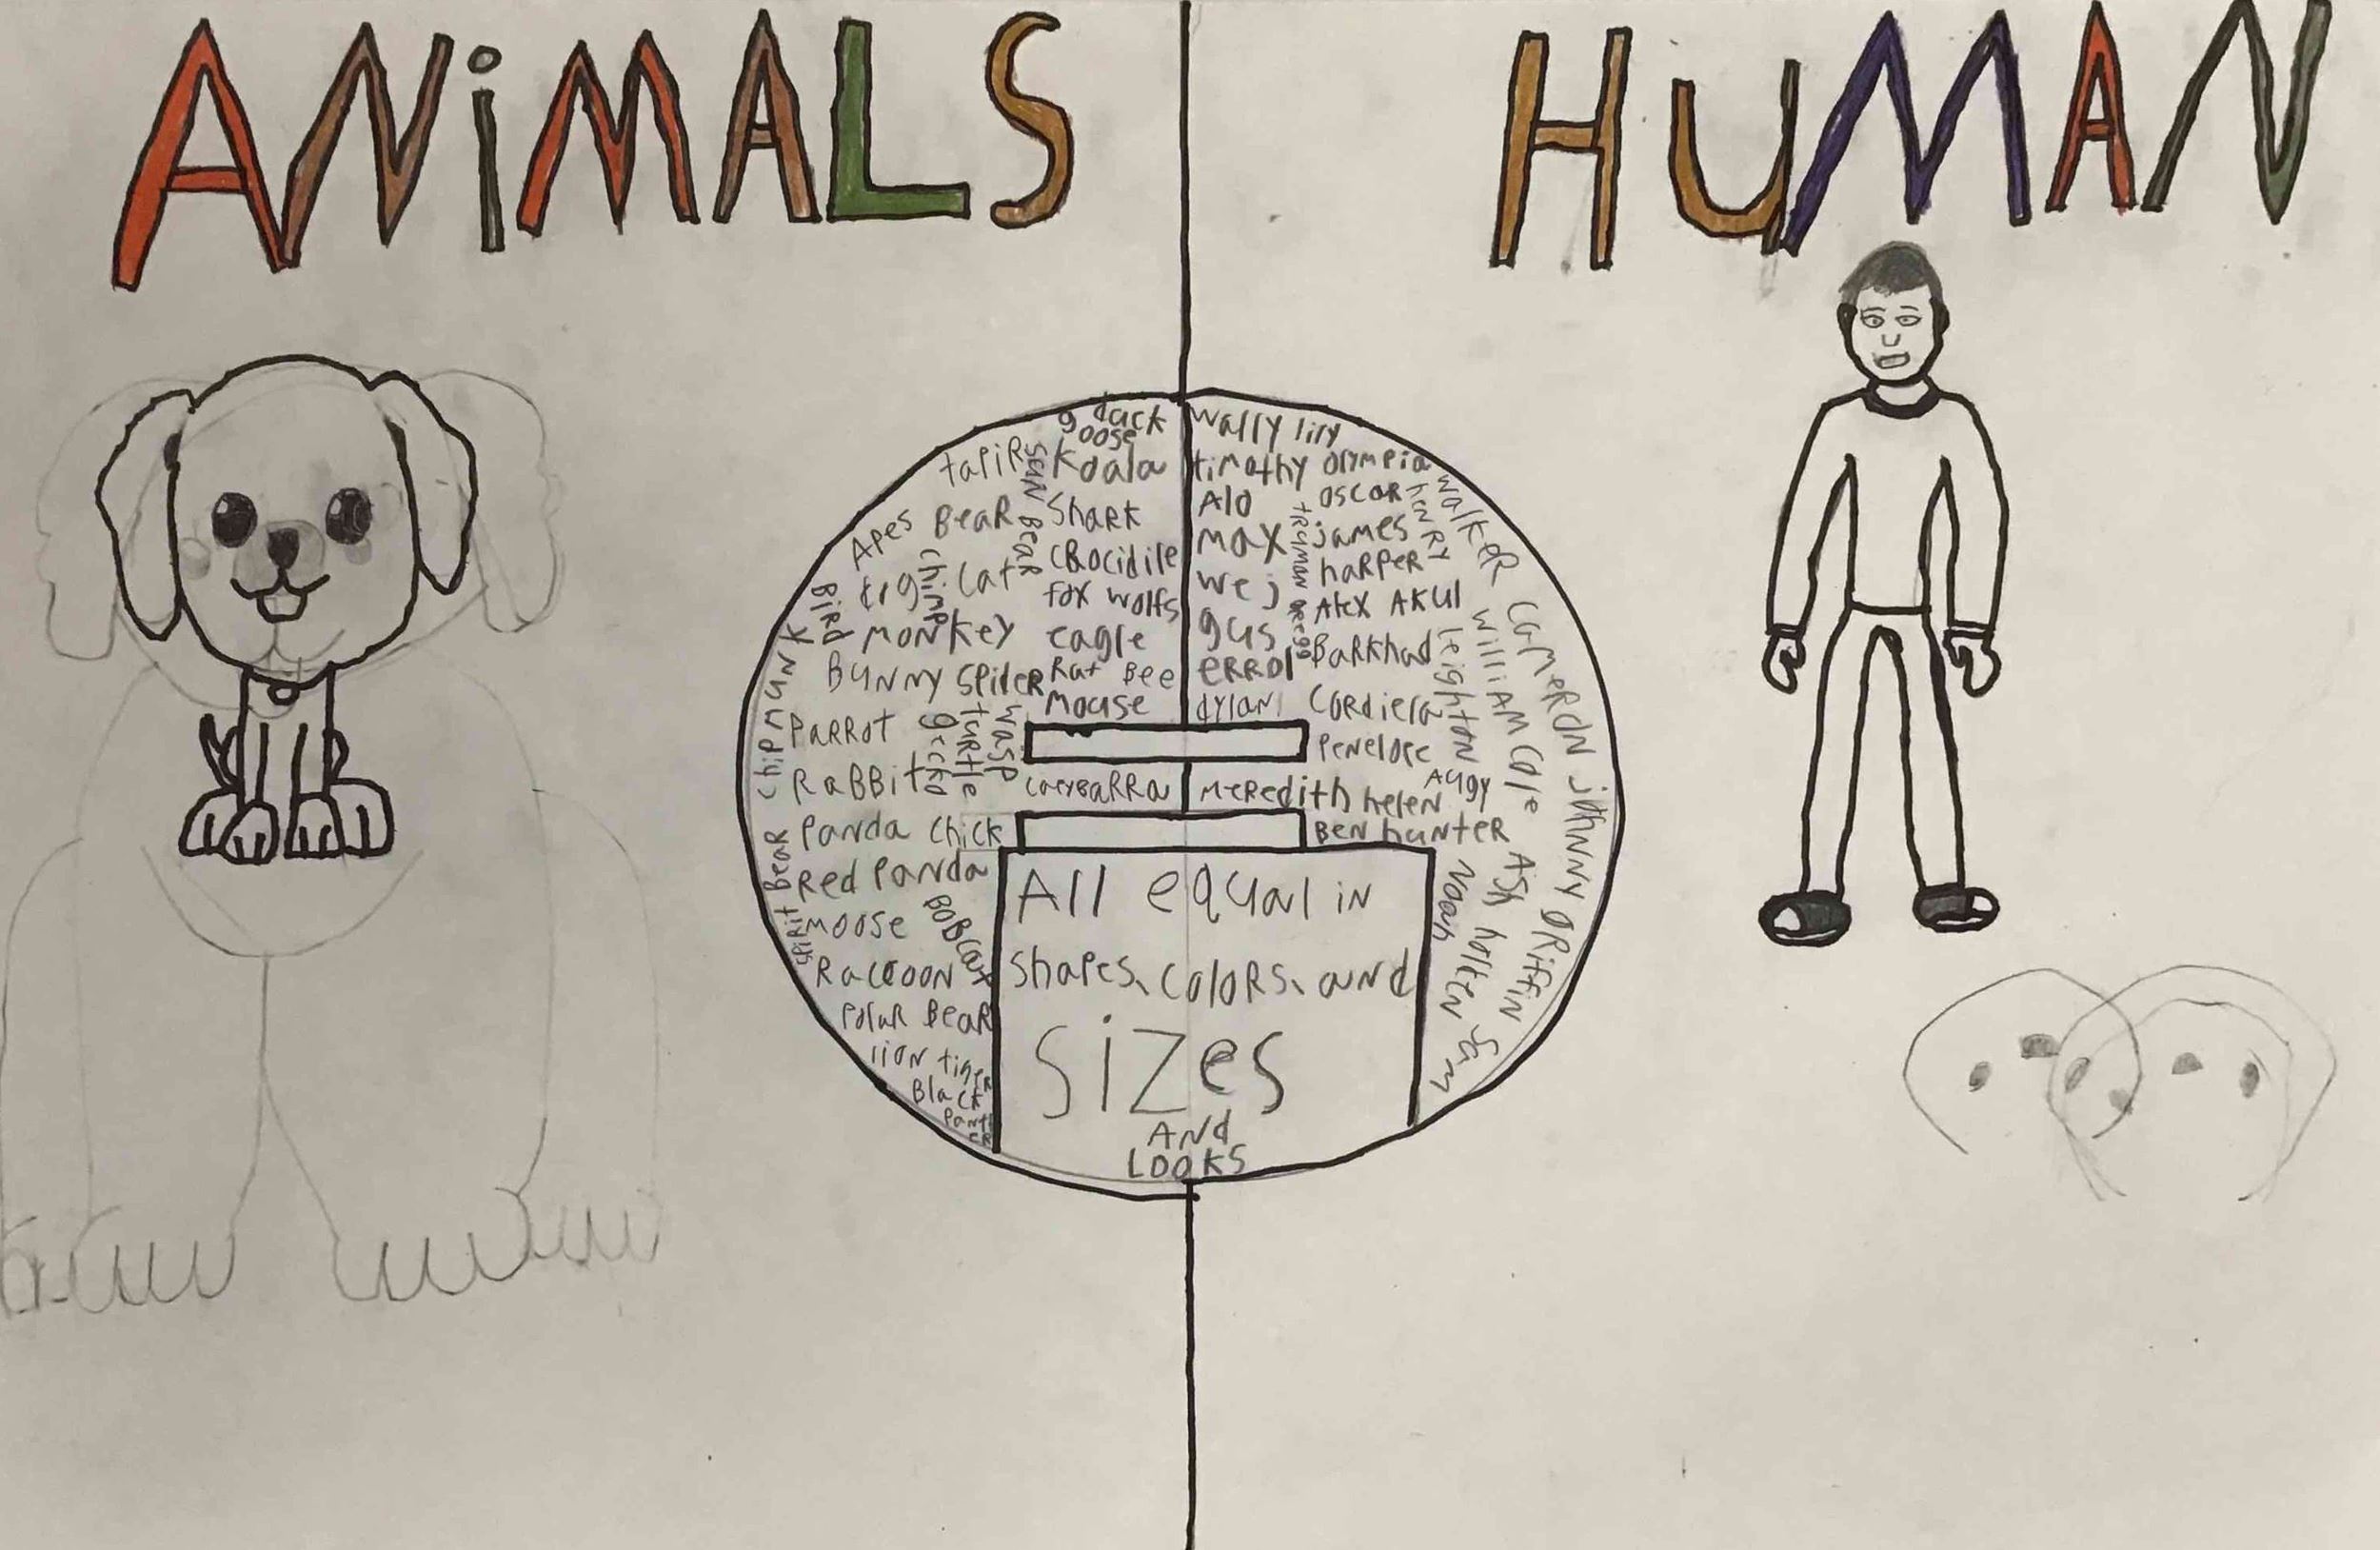 ANiMALS
HUMAN
duck
goose
tapiR
SUN BeaR
Koala
Apes
BeaR
Shark
chimp
Cat
CRocidile
Bird
fox wolfs
monkey
eagle
chipmunk
Bunny
SpideR
Rat
Bee
mouse
PaRRot
gecko
turtle
wasp
RaBBit
Panda
chick
SpiRit BeaR
Red Panda
BOBcat
moose
Raccoon
Polar BeaR
lion tiger
Black
Pant
eR
wally lily
timothy olympia
Alo
oscar
henRy
walkeR
max
tRuman
james
haRPeR
wej
Alex
AKul
gus
BaRKhad
leighton
william
cameRon
eRRol
dylan
CoRdiela
Penelope
cole
johnny
meRedith
helen
Augy
Ben
hunteR
Ash
Noah
holten
gRiffin
Sam
All equal in
Shapes, coloRs, and
Sizes
AND
LOOKS